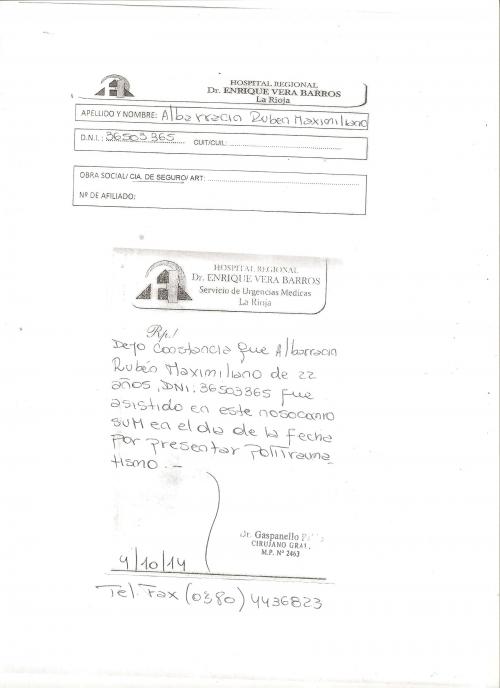 HOSPITAL REGIONAL
Dr. ENRIQUE VERA BARROS
La Rioja
APELLIDO Y NOMBRE: Albarracin Ruben Maximiliano
D.N.I.: 36503365 CUIT/CUIL:
OBRA SOCIAL/ CIA. DE SEGURO/ ART:
Nº DE AFILIADO:
HOSPITAL REGIONAL
Dr. ENRIQUE VERA BARROS
Servicio de Urgencias Medicas
La Rioja
Rp./
Dejo constancia que Albarracin
Rubén Maximiliano de 22
años, DNI: 36503365 fue
asistido en este nosocomio
SUM en el dia de la fecha
por presentar politrauma-
tismo.-
Dr. Gaspanello
CIRUJANO GRAL.
M.P. Nº 2463
4/10/14
Tel. Fax (0380) 4436823